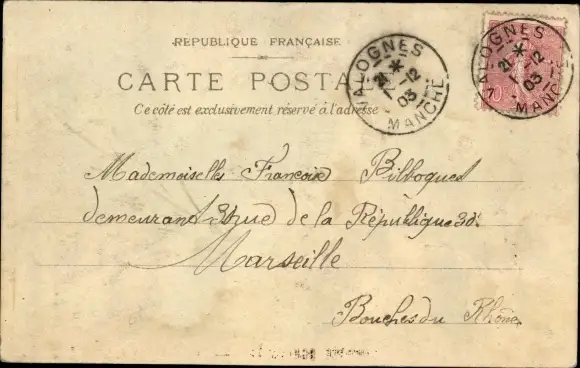 RÉPUBLIQUE FRANÇAISE
CARTE POSTALE
Ce côté est exclusivement réservé à l'adresse
VALOGNES
21 * 12
03
MANCHE
VALOGNES
21 * 12
7 03
MANCHE
10
Mademoiselle Bilboques
demeurant rue de la République 30
Marseille
Bouches du Rhône